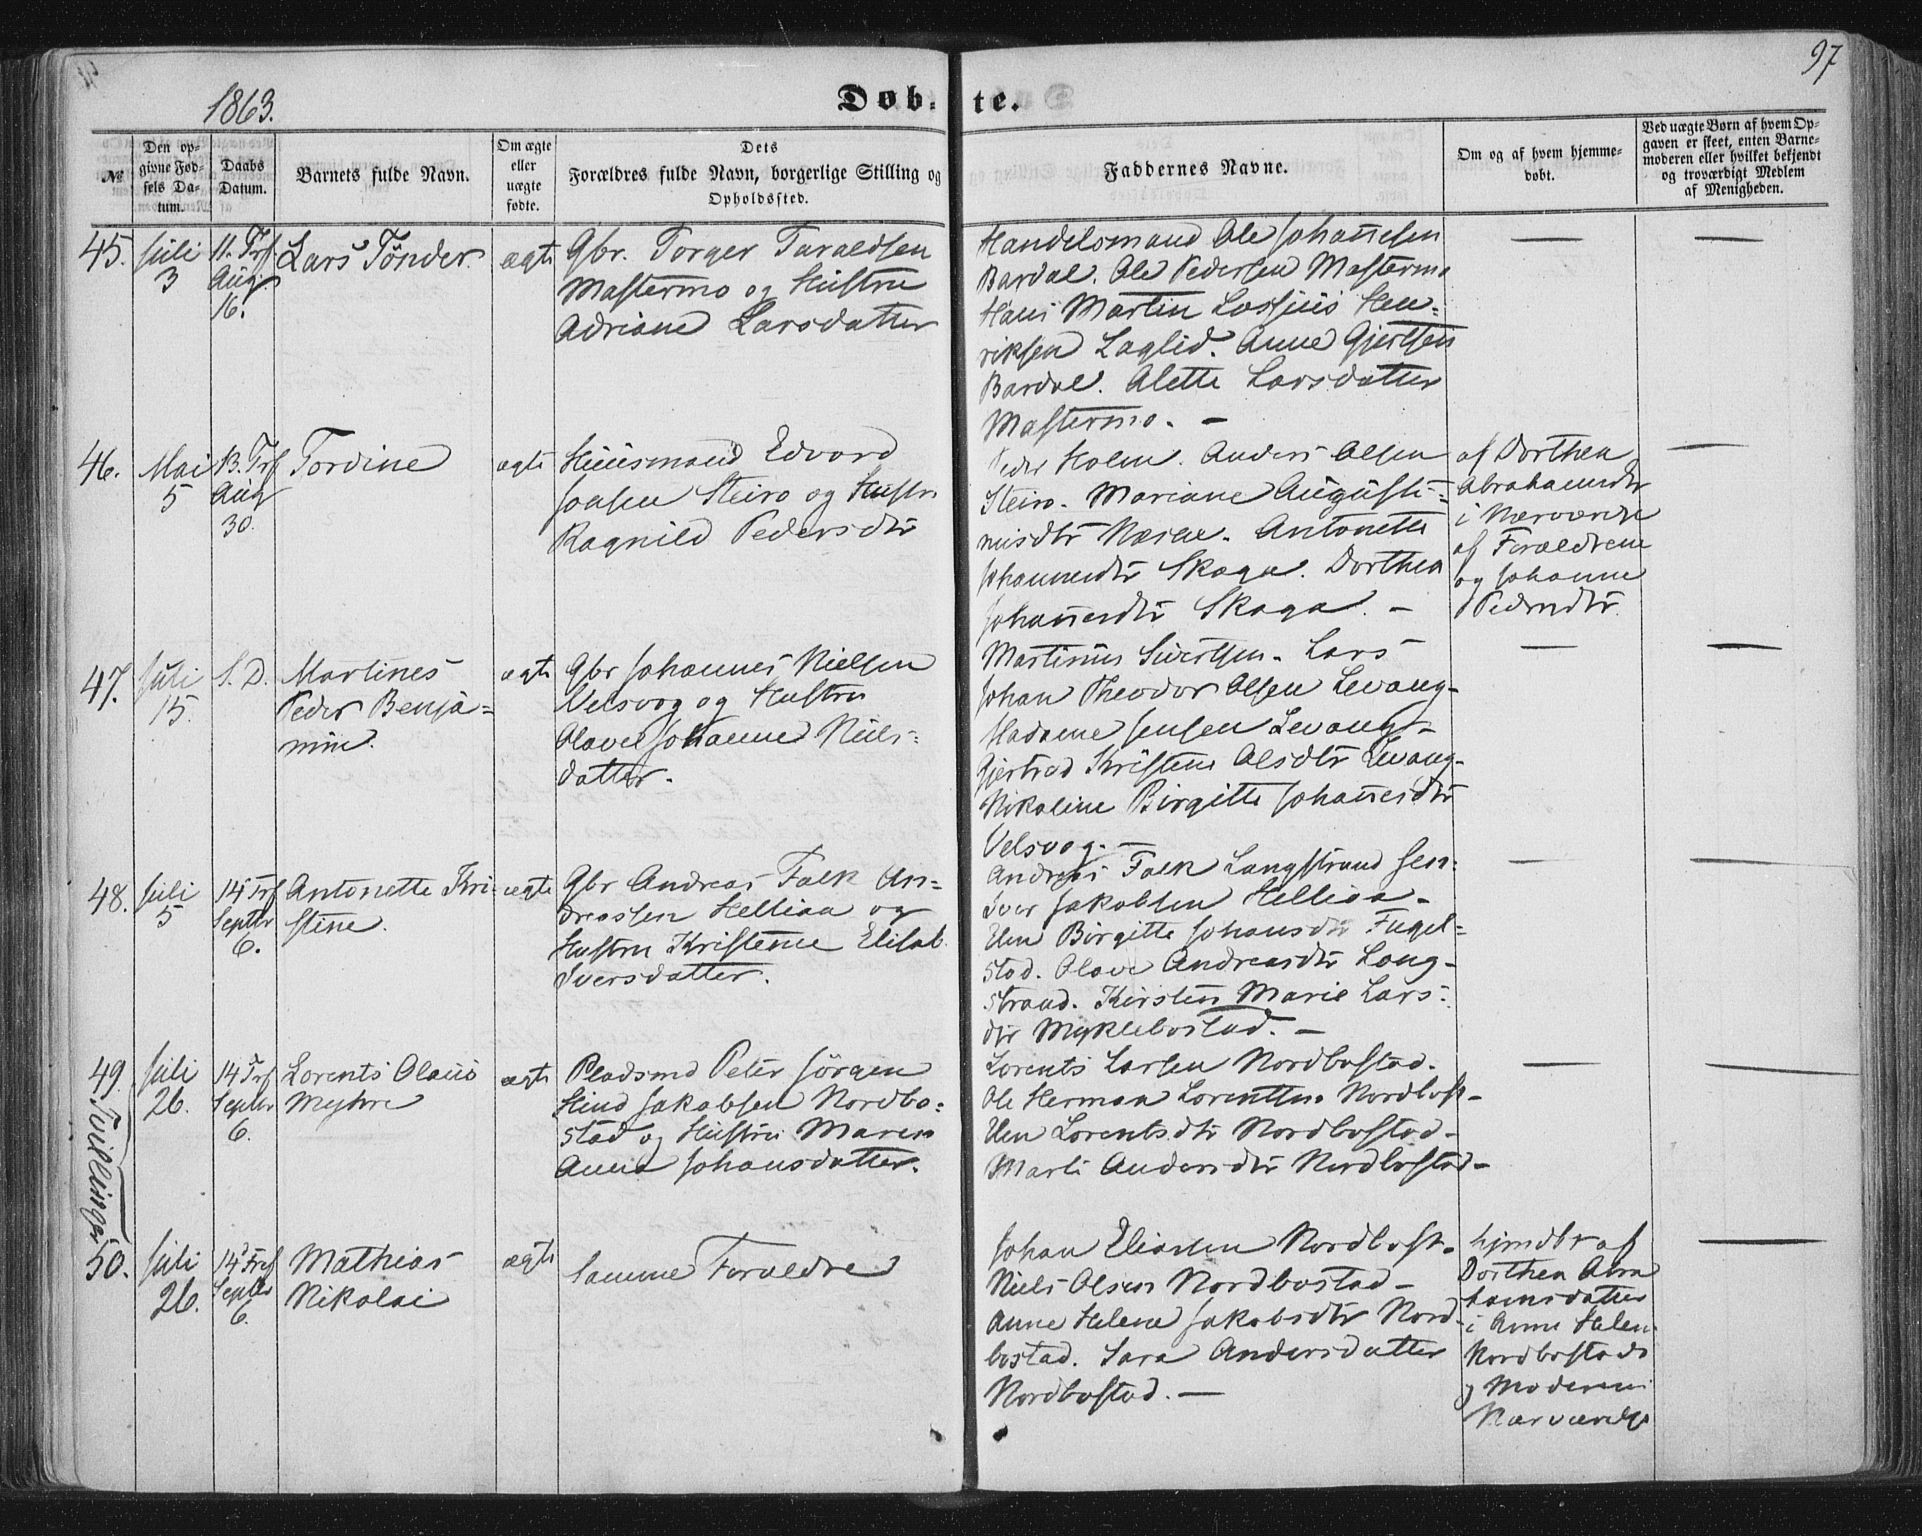 1863.
Døbte.
97
№
Den opgivne Fødsels Datum.
Daabs Datum.
Barnets fulde Navn.
Om ægte eller uægte fødte.
Dets Forældres fulde Navn, borgerlige Stilling og Opholdssted.
Faddernes Navne.
Om og af hvem hjemmedøbt.
Ved uægte Børn af hvem Opgaven er skeet, enten Barnemoderen eller hvilket bekjendt og troværdigt Medlem af Menigheden.
45.
Juli
3
11. Trf.
Aug
16.
Lars Tønder
ægte
Gbr. Torger Taraldsen
Mastermo og Hustru
Adriane Larsdatter
Handelsmand Ole Johannesen
Bardal. Ole Pedersen Mastermo
Hans Martin Lossius Hen=
riksen Laglid. Anne Gjertsen
Bardal. Alette Larsdatter
Mastermo. -
46.
Mai
5
13. Trf
Aug
30.
Tordine
ægte
Huusmand Edvard
Jonsen Steiro og Hustr
Ragnild Pedersdtr
Peder Holm. Anders Olsen
Steiro. Mariane Augusti=
nusdtr Næsne. Antonette
Johannesdtr Skaga. Dorthea
Johannesdtr Skaga. -
af Dorthea
Abrahamsdtr
i Nærværelse
af Forældrene
og Johanne
Pedersdtr
47.
Juli
15.
S. D.
Martines
Peder Benja=
min.
ægte
Gbr Johannes Nielsen
Velsvog og Hustru
Olava Johanne Niels=
datter.
Martinus Sivertsen. Lars
Johan Theodor Olsen Levang-
Madame Jensen Levang-
Gjertrud Kristine Olsdtr Levang-
Nikoline Birgitte Johannesdtr
Velsvog. -
48.
Juli
5
14 Trf
Septbr
6.
Antonette Kri-
stine.
ægte
Gbr Andreas Falk An=
dreassen Hellisa og
Hustru Kristense Elisab.
Iversdatter.
Andreas Falk Langstrand sen.
Iver Jakobsen Hellisa-
Elen Birgitte Johansdtr Fugel=
stad. Olava Andreasdtr Lang-
strand. Kirsten Marie Lars-
dtr Myklebostad. -
Tvillinger
49.
Juli
26.
14 Trf
Septbr
6.
Lorents Olaus
Myhre
ægte
Pladsmd Peter Jørgen
Hind Jakobsen Nordbo=
stad og Hustru Maren
Anna Johansdatter.
Lorents Larsen Nordbostad.
Ole Herman Lorentsen Nordbost-
Elen Lorentsdtr Nordbostad-
Marti Andersdtr Nordbostad-
50.
Juli
26.
14 Tref
Septbr
6.
Mathias
Nikolai
ægte
Samme Forældre
Johan Eliasen Nordbost-
Niels Olsen Nordbostad-
Anne Helene Jakobsdtr Nord-
bostad. Sara Andersdatter
Nordbostad. -
hjmdbt af
Dorthea Abra
hamsdatter
i Anne Helen
Nordbostads
og Moderens
Nærværelse